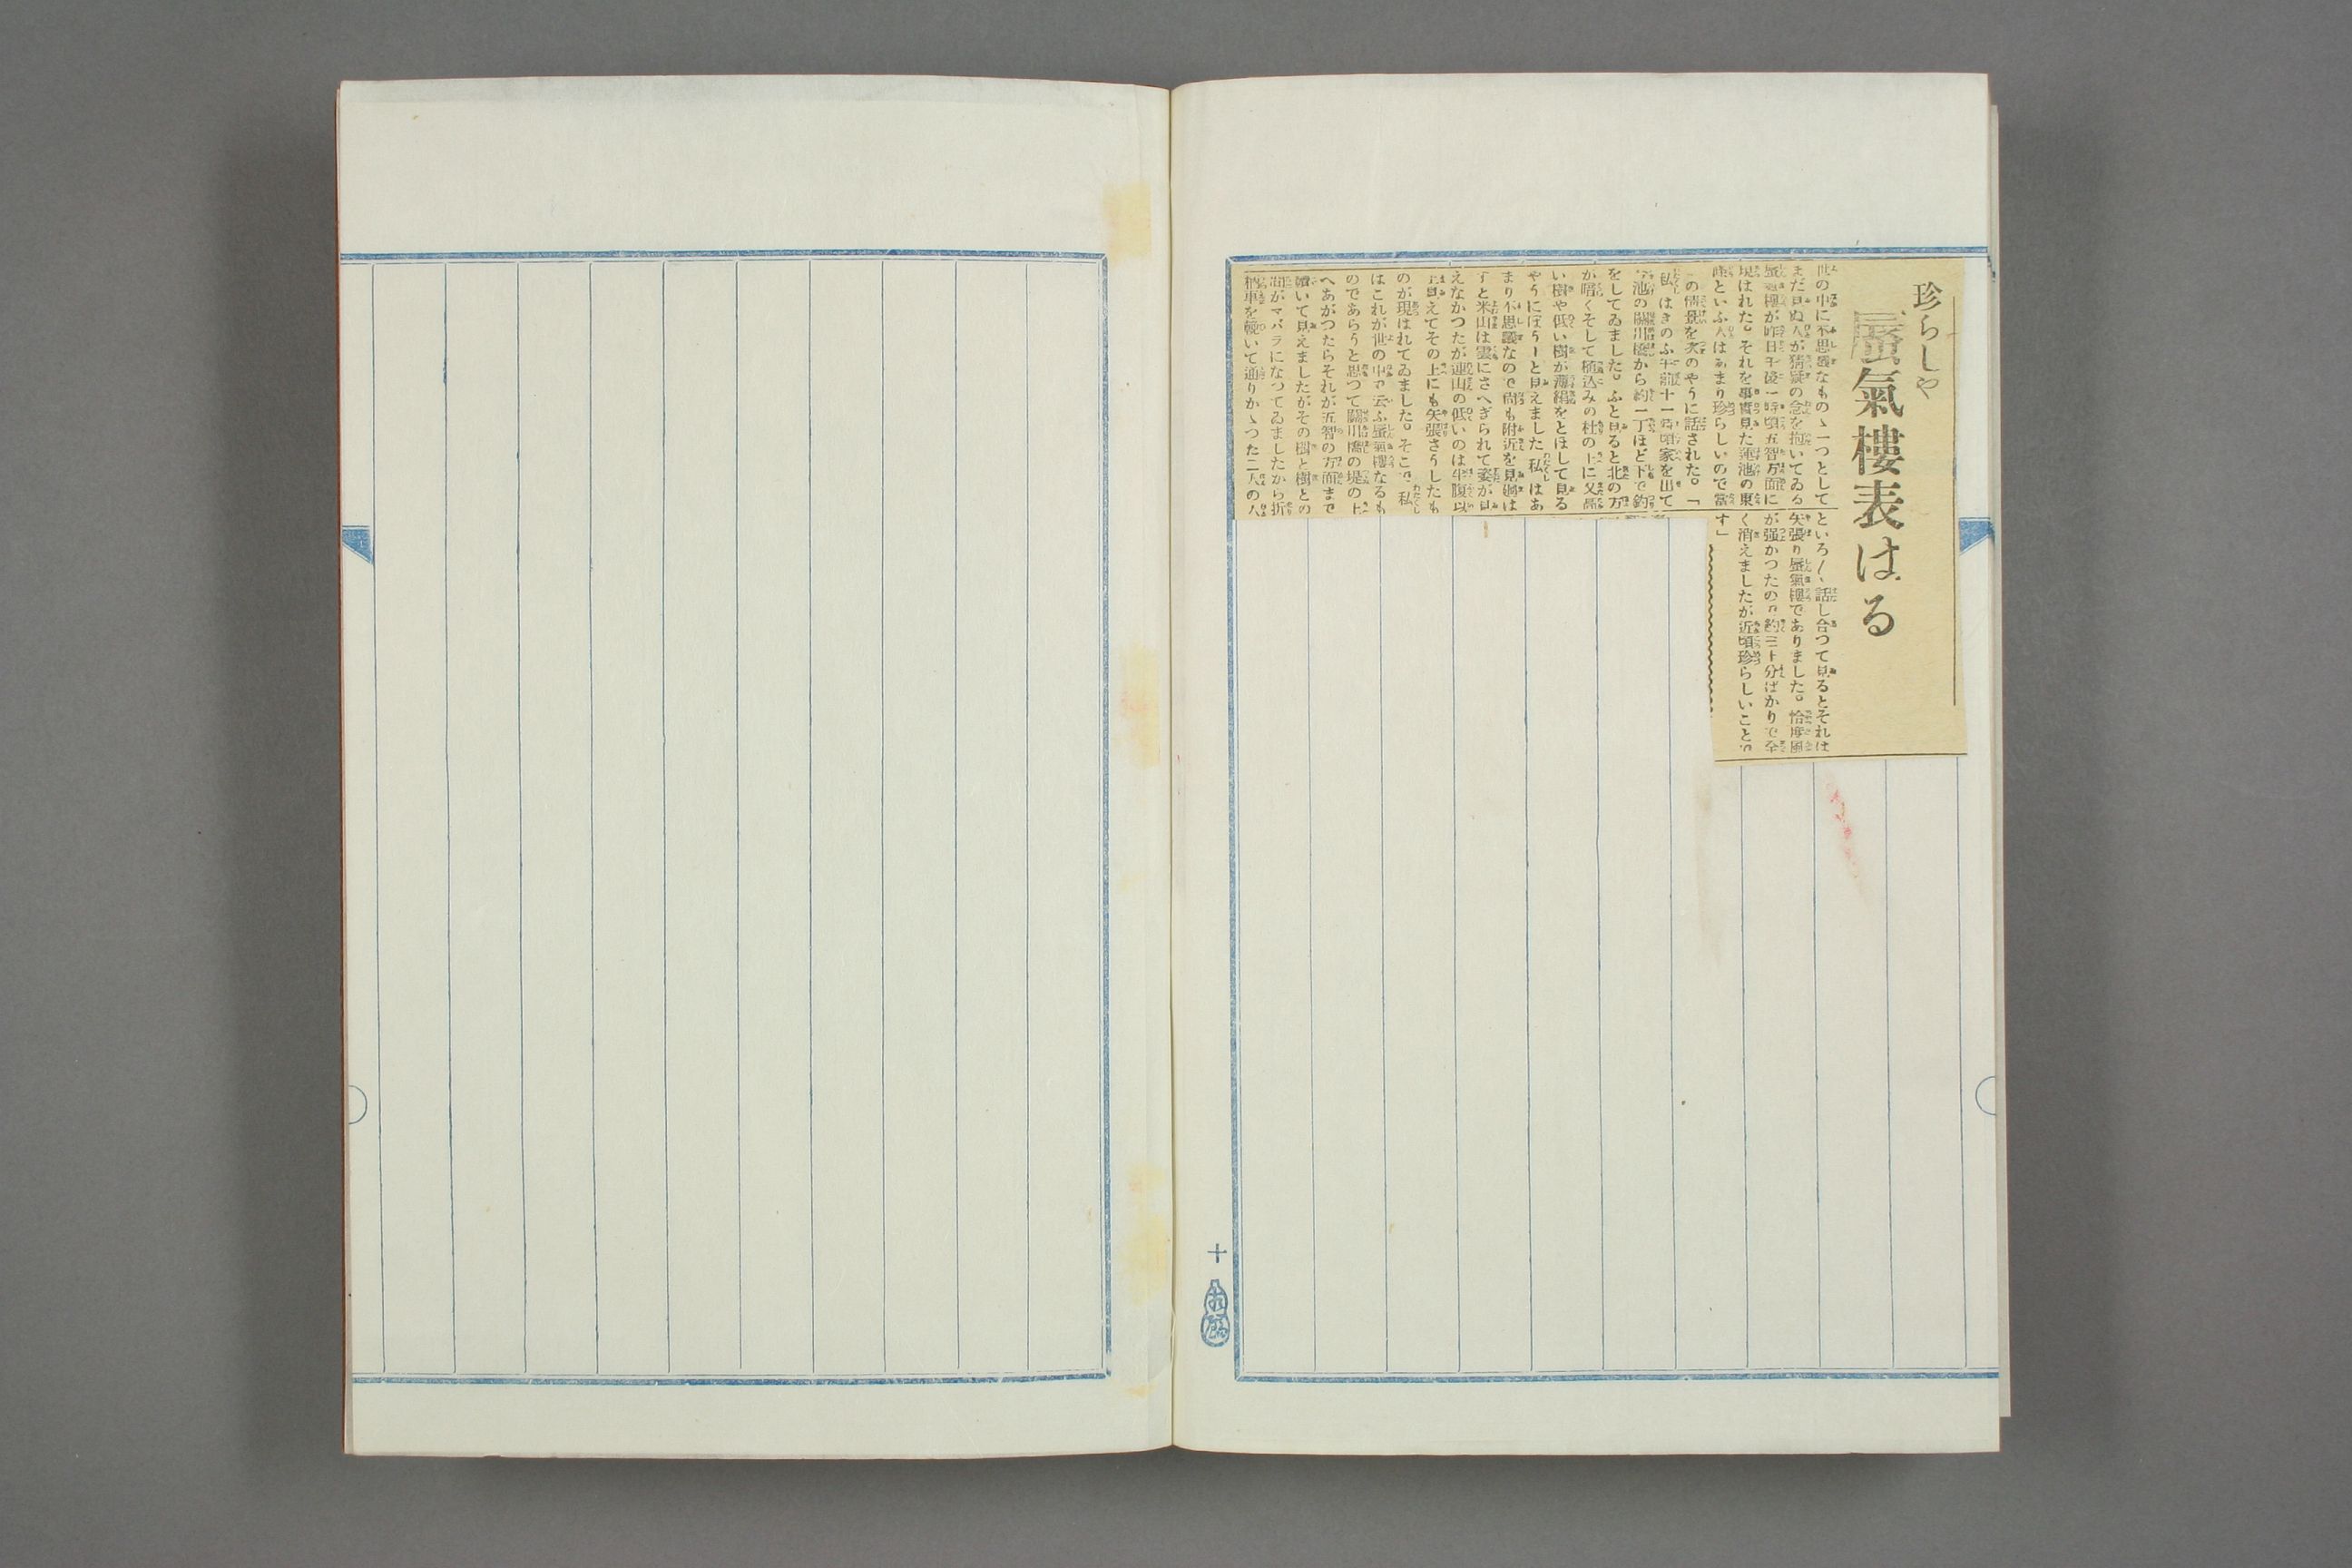 珍らしや
蜃氣樓表はる
世の中に不思議なものゝ一つとして
まだ見ぬ人が猜疑の念を抱いてゐる
蜃氣樓が昨日午後一時頃五智方面に
現はれた。それを事實見た蓮池の東
條といふ人はあまり珍らしいので當
の情景を次のやうに話された。「
私はきのふ午前十一時頃家を出て
池の關川橋から約一丁ほど下で釣
をしてゐました。ふと見ると北の方
が暗くそして植込みの杜の上に又高
い樹や低い樹が薄絹をとほして見る
やうにぼうーと見えました私はあ
まり不思議なので尚も附近を見廻は
すと米山は雲にさへぎられて姿が見
えなかつたが連山の低いのは半腹以
上見えてその上にも矢張さうしたも
のが現はれてゐました。そこで私
はこれが世の中で云ふ蜃氣樓なるも
のであらうと思つて關川橋の堤の上
へあがつたらそれが五智の方面まで
續いて見えましたがその樹と樹との
間がマバラになつてゐましたから折
柄車を輓いて通りかゝつた二人の人
といろ〳〵話し合つて見るとそれは
矢張り蜃氣樓でありました。恰度風
が强かつたので約三十分ばかりで全
く消えましたが近頃珍らしいことで
す」
十